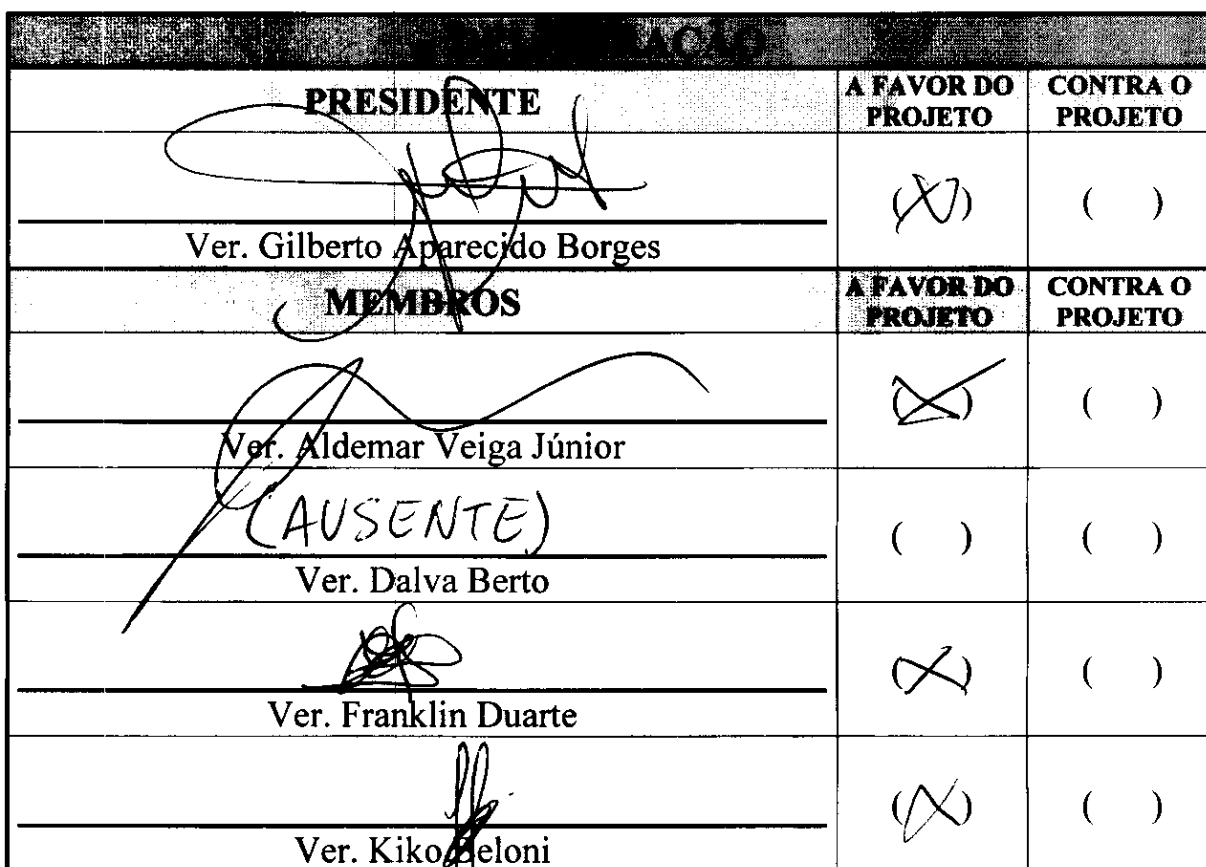 PRESIDENTE
A FAVOR DO PROJETO
CONTRA O PROJETO
Ver. Gilberto Aparecido Borges
(X)
( )
MEMBROS
A FAVOR DO PROJETO
CONTRA O PROJETO
Ver. Aldemar Veiga Júnior
(X)
( )
(AUSENTE)
Ver. Dalva Berto
( )
( )
Ver. Franklin Duarte
(X)
( )
Ver. Kiko Beloni
(X)
( )